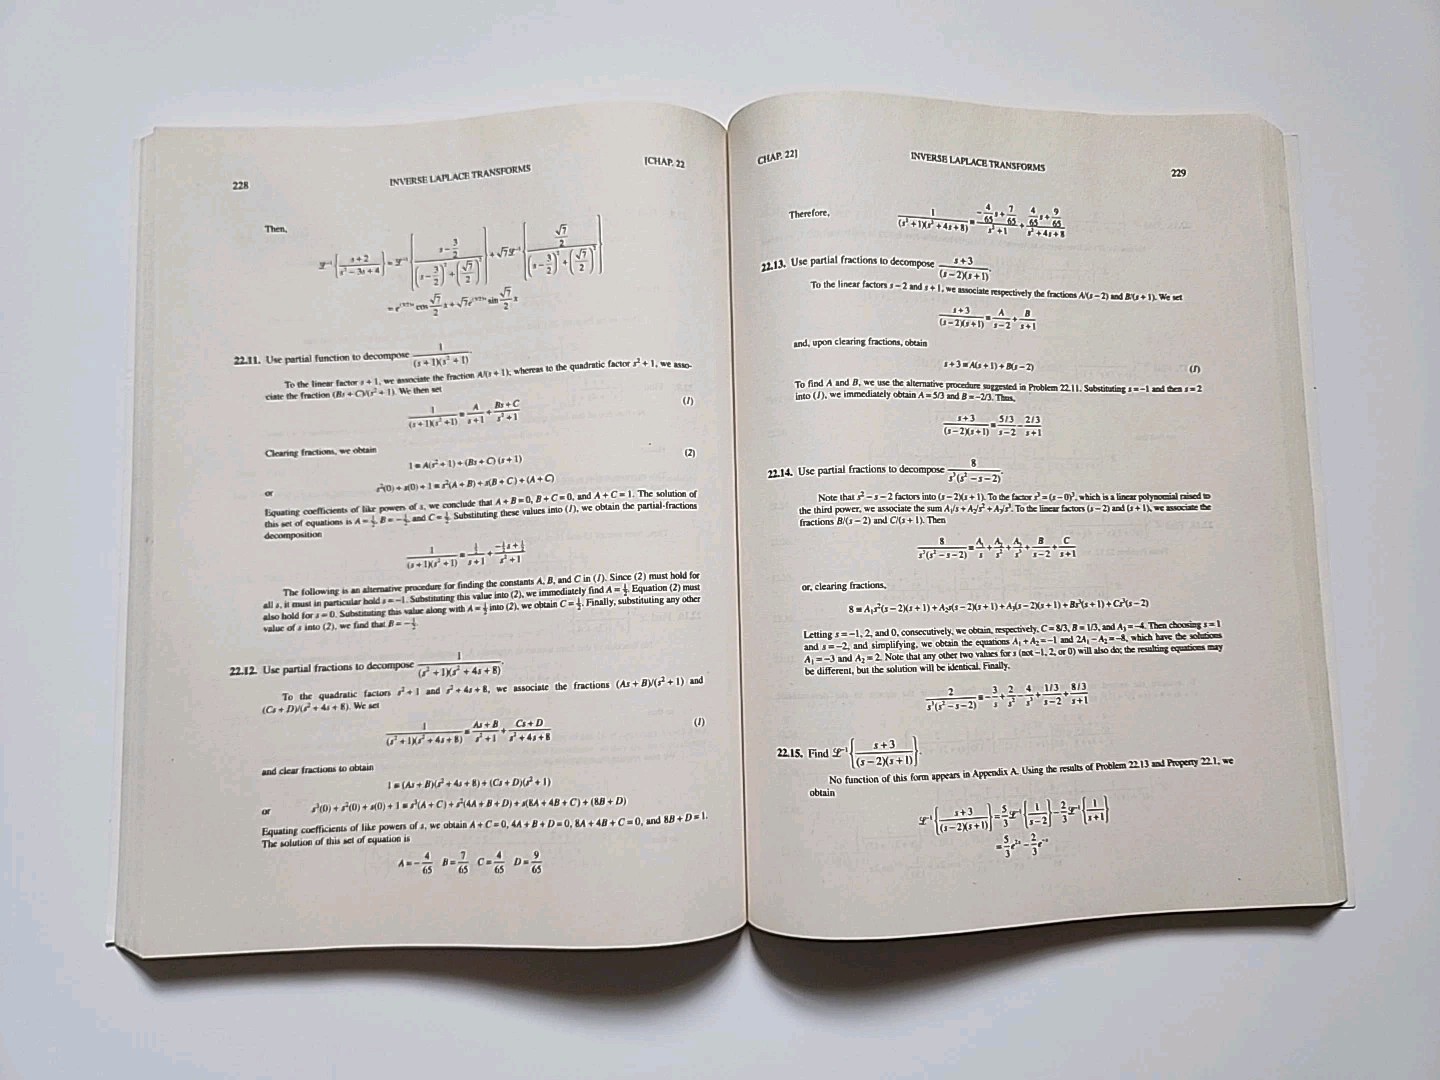 228
INVERSE LAPLACE TRANSFORMS
[CHAP. 22
Then,
ℒ⁻¹{(s+2)/(s²−3s+4)} = ℒ⁻¹{(s−3/2)/[(s−3/2)²+(√7/2)²]} + √7ℒ⁻¹{(√7/2)/[(s−3/2)²+(√7/2)²]}
= e^{(3/2)x} cos (√7/2)x + √7e^{(3/2)x} sin (√7/2)x
22.11. Use partial function to decompose 1/((s+1)(s²+1)).
To the linear factor s+1, we associate the fraction A/(s+1); whereas to the quadratic factor s²+1, we asso-
ciate the fraction (Bs+C)/(s²+1). We then set
1/((s+1)(s²+1)) ≡ A/(s+1) + (Bs+C)/(s²+1)
(1)
Clearing fractions, we obtain
1 ≡ A(s²+1)+(Bs+C)(s+1)
(2)
or
s²(0)+s(0)+1 ≡ s²(A+B)+s(B+C)+(A+C)
Equating coefficients of like powers of s, we conclude that A+B=0, B+C=0, and A+C=1. The solution of
this set of equations is A=½, B=−½, and C=½. Substituting these values into (1), we obtain the partial-fractions
decomposition
1/((s+1)(s²+1)) ≡ ½/(s+1) + (−½s+½)/(s²+1)
The following is an alternative procedure for finding the constants A, B, and C in (1). Since (2) must hold for
all s, it must in particular hold s=−1. Substituting this value into (2), we immediately find A=½. Equation (2) must
also hold for s=0. Substituting this value along with A=½ into (2), we obtain C=½. Finally, substituting any other
value of s into (2), we find that B=−½.
22.12. Use partial fractions to decompose 1/((s²+1)(s²+4s+8)).
To the quadratic factors s²+1 and s²+4s+8, we associate the fractions (As+B)/(s²+1) and
(Cs+D)/(s²+4s+8). We set
1/((s²+1)(s²+4s+8)) ≡ (As+B)/(s²+1) + (Cs+D)/(s²+4s+8)
(1)
and clear fractions to obtain
1 ≡ (As+B)(s²+4s+8)+(Cs+D)(s²+1)
or
s³(0)+s²(0)+s(0)+1 ≡ s³(A+C)+s²(4A+B+D)+s(8A+4B+C)+(8B+D)
Equating coefficients of like powers of s, we obtain A+C=0, 4A+B+D=0, 8A+4B+C=0, and 8B+D=1.
The solution of this set of equation is
A=−4/65 B=7/65 C=4/65 D=9/65
CHAP. 22]
INVERSE LAPLACE TRANSFORMS
229
Therefore,
1/((s²+1)(s²+4s+8)) ≡ (−4/65 s+7/65)/(s²+1) + (4/65 s+9/65)/(s²+4s+8)
22.13. Use partial fractions to decompose (s+3)/((s−2)(s+1)).
To the linear factors s−2 and s+1, we associate respectively the fractions A/(s−2) and B/(s+1). We set
(s+3)/((s−2)(s+1)) ≡ A/(s−2) + B/(s+1)
and, upon clearing fractions, obtain
s+3 ≡ A(s+1)+B(s−2)
(1)
To find A and B, we use the alternative procedure suggested in Problem 22.11. Substituting s=−1 and then s=2
into (1), we immediately obtain A=5/3 and B=−2/3. Thus,
(s+3)/((s−2)(s+1)) ≡ (5/3)/(s−2) − (2/3)/(s+1)
22.14. Use partial fractions to decompose 8/(s³(s²−s−2)).
Note that s²−s−2 factors into (s−2)(s+1). To the factor s³=(s−0)³, which is a linear polynomial raised to
the third power, we associate the sum A₁/s+A₂/s²+A₃/s³. To the linear factors (s−2) and (s+1), we associate the
fractions B/(s−2) and C/(s+1). Then
8/(s³(s²−s−2)) ≡ A₁/s + A₂/s² + A₃/s³ + B/(s−2) + C/(s+1)
or, clearing fractions,
8 ≡ A₁s²(s−2)(s+1)+A₂s(s−2)(s+1)+A₃(s−2)(s+1)+Bs³(s+1)+Cs³(s−2)
Letting s=−1, 2, and 0, consecutively, we obtain, respectively, C=8/3, B=1/3, and A₃=−4. Then choosing s=1
and s=−2, and simplifying, we obtain the equations A₁+A₂=−1 and 2A₁−A₂=−8, which have the solutions
A₁=−3 and A₂=2. Note that any other two values for s (not −1, 2, or 0) will also do; the resulting equations may
be different, but the solution will be identical. Finally,
2/(s³(s²−s−2)) ≡ −3/s + 2/s² − 4/s³ + (1/3)/(s−2) + (8/3)/(s+1)
22.15. Find ℒ⁻¹{(s+3)/((s−2)(s+1))}.
No function of this form appears in Appendix A. Using the results of Problem 22.13 and Property 22.1, we
obtain
ℒ⁻¹{(s+3)/((s−2)(s+1))} = 5/3 ℒ⁻¹{1/(s−2)} − 2/3 ℒ⁻¹{1/(s+1)}
= 5/3 e²ˣ − 2/3 e⁻ˣ